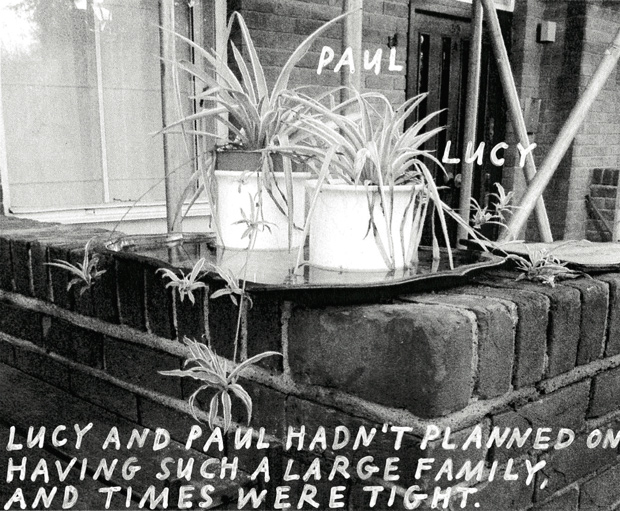 PAUL
LUCY
LUCY AND PAUL HADN'T PLANNED ON
HAVING SUCH A LARGE FAMILY,
AND TIMES WERE TIGHT.